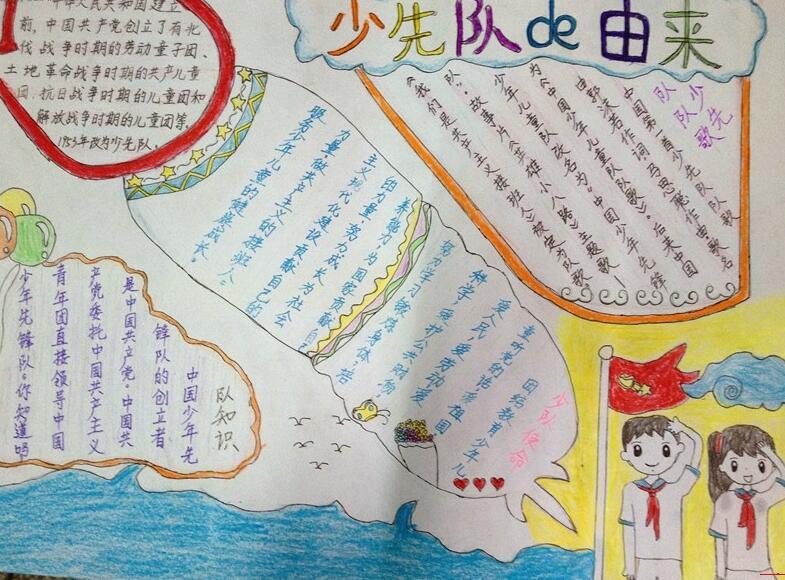 少先队de由来
华人民共和国建立
前,中国共产党创立了有北
伐战争时期的劳动童子团、
土地革命战争时期的共产儿童
团、抗日战争时期的儿童团和
解放战争时期的儿童团等。
1953年改为少先队。
少先
队队歌
中国第一首少先队队歌
由郭沫若作词,马思聪作曲歌名
为《中国少年儿童队队歌》。后来中国
少年儿童队改名为“中国少年先锋
队”。故事片《英雄小八路》主题歌
《我们是共产主义接班人》被定为队歌
少队使命
团结教育少年儿
童听党的话,爱祖国、
爱人民,爱劳动爱
科学,爱护公共财物,
努力学习锻炼身体,培
养能力,为国家贡献自
的力量努力成长为社会
主义现代化建设贡献自己的
力量,做共产主义的接班人。
服务少年儿童的健康成长。
队知识
中国少年先
锋队的创立者
是中国共产党。中国共
产党委托中国共产主义
青年团直接领导中国
少年先锋队。你知道吗